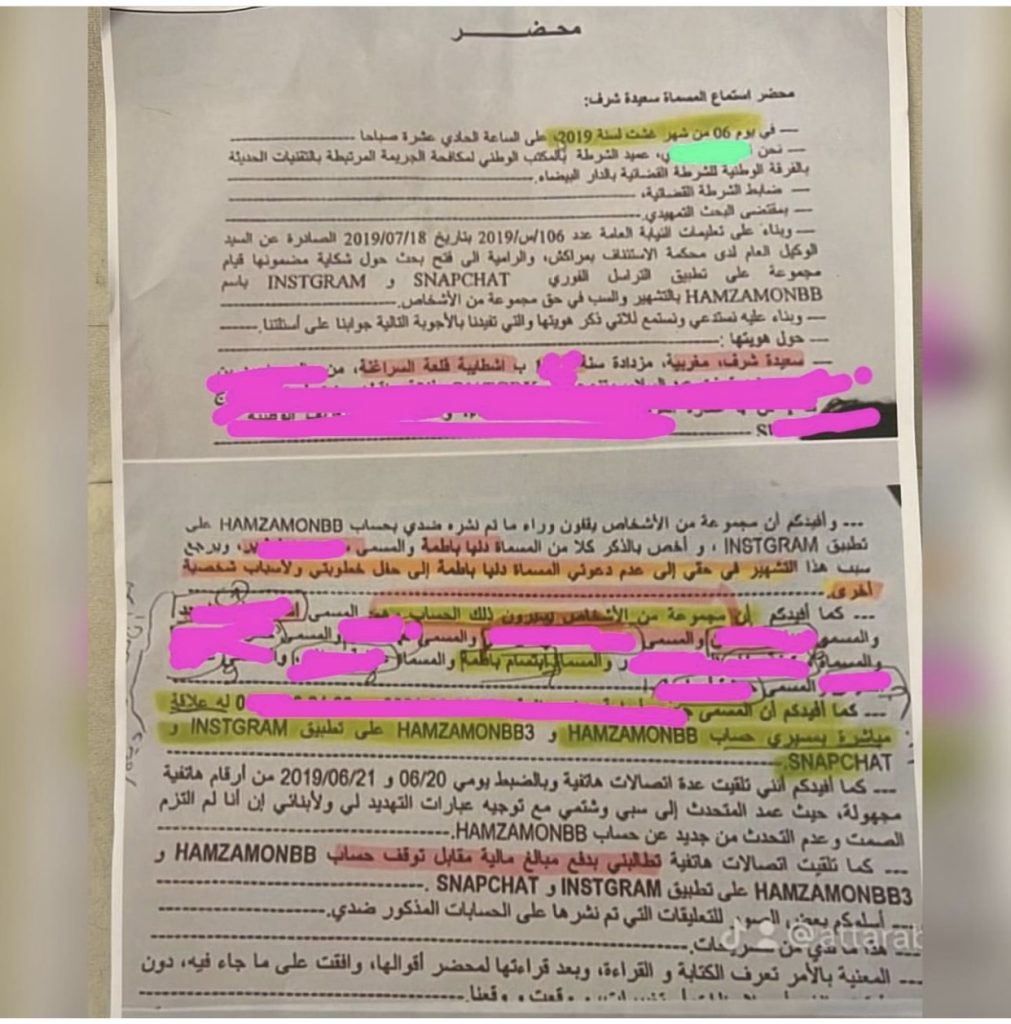 محضـــــــر
محضر استماع المسماة سعيدة شرف:
--- في يوم 06 من شهر غشت لسنة 2019، على الساعة الحادي عشرة صباحا
--- نحن ، عميد الشرطة بالمكتب الوطني لمكافحة الجريمة المرتبطة بالتقنيات الحديثة
بالفرقة الوطنية للشرطة القضائية بالدار البيضاء.
--- ضابط الشرطة القضائية،
--- بمقتضى البحث التمهيدي.
--- وبناء على تعليمات النيابة العامة عدد 106/س/2019 بتاريخ 2019/07/18 الصادرة عن السيد
الوكيل العام لدى محكمة الاستئناف بمراكش، والرامية الى فتح بحث حول شكاية مضمونها قيام
مجموعة على تطبيق التراسل الفوري SNAPCHAT و INSTGRAM باسم
HAMZAMONBB بالتشهير والسب في حق مجموعة من الأشخاص.
--- وبناء عليه نستدعي ونستمع للاتي ذكر هويتها والتي تفيدنا بالأجوبة التالية جوابنا على أسئلتنا.
--- حول هويتها :
--- سعيدة شرف، مغربية، مزدادة سنة ب اشطابية قلعة السراغنة، من
--- وأفيدكم أن مجموعة من الأشخاص يقفون وراء ما تم نشره ضدي بحساب HAMZAMONBB على
تطبيق INSTGRAM ، و أخص بالذكر كلا من المسماة دنيا باطمة والمسمى ، ويرجع
سبب هذا التشهير في حقي إلى عدم دعوتي المسماة دنيا باطمة إلى حفل خطوبتي ولأسباب شخصية
أخرى.
--- كما أفيدكم أن مجموعة من الأشخاص يسيرون ذلك الحساب، هم المسمى
والمسمى والمسمى والمسمى والمسمى
والمسماة و والمسماة ابتسام باطمة والمسماة
المسمى
--- كما أفيدكم أن المسمى له علاقة
مباشرة بمسيري حساب HAMZAMONBB و HAMZAMONBB3 على تطبيق INSTGRAM و
SNAPCHAT.
--- كما أفيدكم أنني تلقيت عدة اتصالات هاتفية وبالضبط يومي 06/20 و 2019/06/21 من أرقام هاتفية
مجهولة، حيث عمد المتحدث إلى سبي وشتمي مع توجيه عبارات التهديد لي ولأبنائي إن أنا لم التزم
الصمت وعدم التحدث من جديد عن حساب HAMZAMONBB.
--- كما تلقيت اتصالات هاتفية تطالبني بدفع مبالغ مالية مقابل توقف حساب HAMZAMONBB و
HAMZAMONBB3 على تطبيق INSTGRAM و SNAPCHAT .
--- أسلمكم بعض الصور للتعليقات التي تم نشرها على الحسابات المذكور ضدي.
--- هذا ما لدي من
--- المعنية بالأمر تعرف الكتابة و القراءة، وبعد قراءتها لمحضر أقوالها، وافقت على ما جاء فيه، دون
@attarab